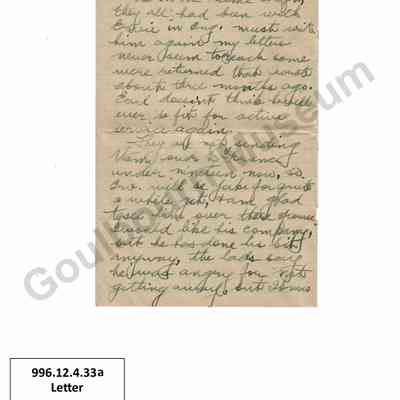 they all had been with
in Eng. must write
him again my letters
never seem to reach some
were returned that I wrote
about three months ago.
doesn't think he will
ever be fit for active
service again.
They are not sending
over to France
under nineteen now, so
will be for quite
a while yet, I am glad
to see him over there
like his company,
but he has done his bit
anyway, the lads say
he was angry for not
getting away, but
Goulbourn Museum
996.12.4.33a
Letter